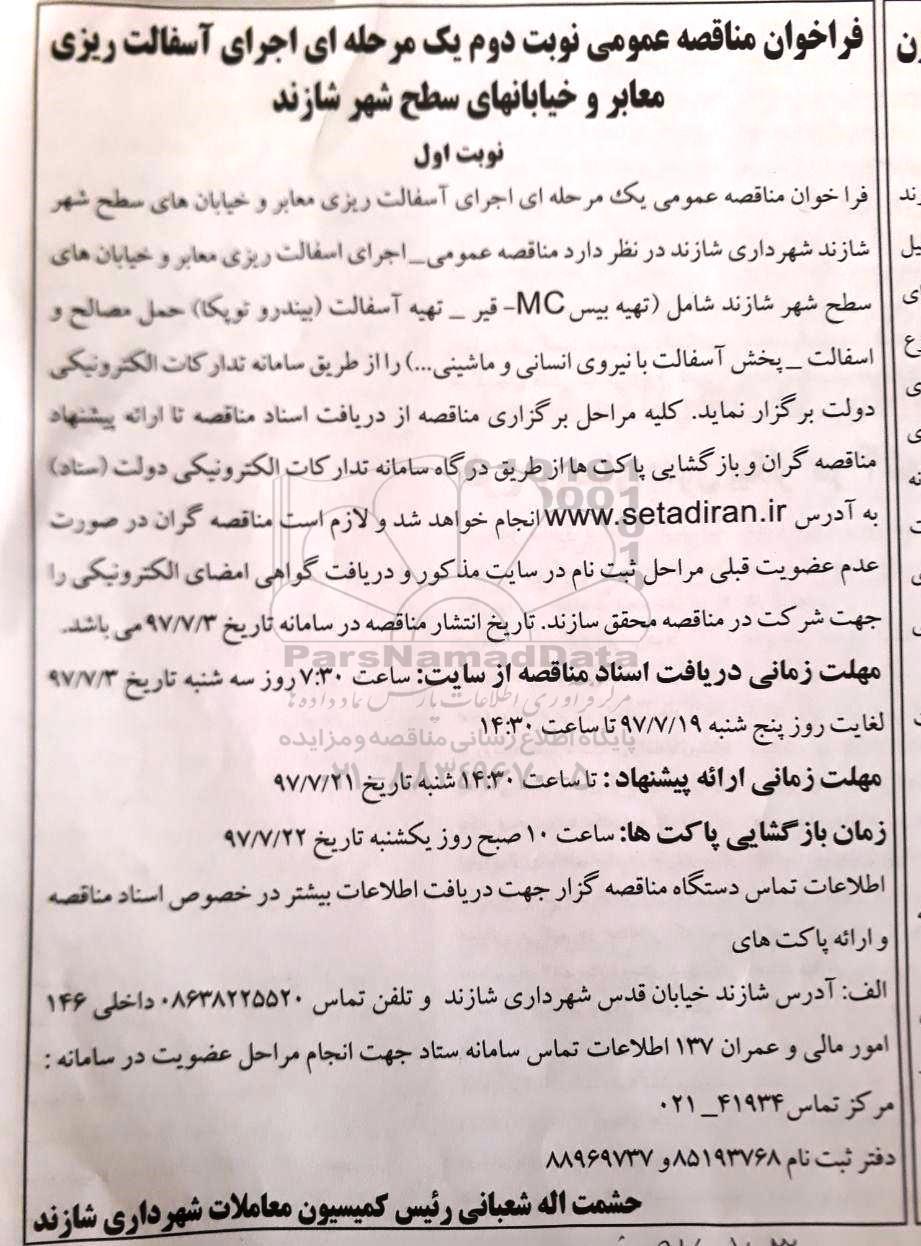 فراخوان مناقصه عمومی نوبت دوم یک مرحله ای اجرای آسفالت ریزی
معابر و خیابانهای سطح شهر شازند
نوبت اول
فرا خوان مناقصه عمومی یک مرحله ای اجرای آسفالت ریزی معابر و خیابان های سطح شهر
شازند شهرداری شازند در نظر دارد مناقصه عمومی_اجرای اسفالت ریزی معابر و خیابان های
سطح شهر شازند شامل (تهیه بیس MC- قیر _ تهیه آسفالت (بیندرو توپکا) حمل مصالح و
اسفالت _ پخش آسفالت با نیروی انسانی و ماشینی...) را از طریق سامانه تدارکات الکترونیکی
دولت برگزار نماید. کلیه مراحل برگزاری مناقصه از دریافت اسناد مناقصه تا ارائه پیشنهاد
مناقصه گران و بازگشایی پاکت ها از طریق درگاه سامانه تدارکات الکترونیکی دولت (ستاد)
به آدرس www.setadiran.ir انجام خواهد شد و لازم است مناقصه گران در صورت
عدم عضویت قبلی مراحل ثبت نام در سایت مذکور و دریافت گواهی امضای الکترونیکی را
جهت شرکت در مناقصه محقق سازند. تاریخ انتشار مناقصه در سامانه تاریخ ۹۷/۷/۳ می باشد.
ParsNamadData
مهلت زمانی دریافت اسناد مناقصه از سایت: ساعت ۷:۳۰ روز سه شنبه تاریخ ۹۷/۷/۳
مرکز فرآوری اطلاعات پارس نماد داده ها
لغایت روز پنج شنبه ۹۷/۷/۱۹ تا ساعت ۱۴:۳۰
پایگاه اطلاع رسانی مناقصه و مزایده
مهلت زمانی ارائه پیشنهاد : تا ساعت ۱۴:۳۰ شنبه تاریخ ۹۷/۷/۲۱
۰۲۱-۸۸۳۴۹۶۷۰-۵
زمان بازگشایی پاکت ها: ساعت ۱۰ صبح روز یکشنبه تاریخ ۹۷/۷/۲۲
اطلاعات تماس دستگاه مناقصه گزار جهت دریافت اطلاعات بیشتر در خصوص اسناد مناقصه
و ارائه پاکت های
الف: آدرس شازند خیابان قدس شهرداری شازند و تلفن تماس ۰۸۶۳۸۲۲۵۵۲۰ داخلی ۱۴۶
امور مالی و عمران ۱۳۷ اطلاعات تماس سامانه ستاد جهت انجام مراحل عضویت در سامانه :
مرکز تماس ۴۱۹۳۴_ ۰۲۱
دفتر ثبت نام ۸۵۱۹۳۷۶۸و ۸۸۹۶۹۷۳۷
حشمت اله شعبانی رئیس کمیسیون معاملات شهرداری شازند